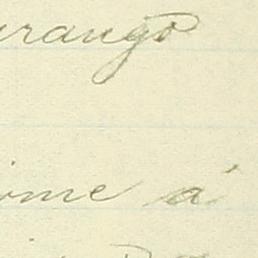 urango
ome á